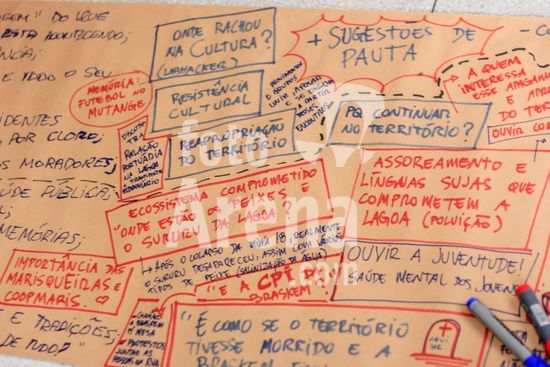 AGEM" DO LEVE
ESTÁ ACONTECENDO;
ÂNCIA;
E TODO O SEU
IDENTES
, POR CLORO,
S MORADORES;
ÚDE PÚBLICA;
EMÓRIAS;
E TRADIÇÕES;
DE TUDO?
MEMÓRIA:
FUTEBOL NO
MUTANGE
ONDE RACHOU
NA CULTURA?
(LABHACKER)
RESISTÊNCIA
CULTURAL
REAPROPRIAÇÃO
DO TERRITÓRIO
RELAÇÃO
PORTUÁRIA
NA LAGOA
+ SUGESTÕES DE
PAUTA
PQ CONTINUAR
NO TERRITÓRIO?
A QUEM
INTERESSA
ESSE APAGAMEN
E APA
DO TE
OUVIR CO
ECOSSISTEMA COMPROMETIDO
"ONDE ESTÃO OS PEIXES E
O SURURU DA LAGOA?"
ASSOREAMENTO E
LÍNGUAS SUJAS QUE
COMPROMETEM A
LAGOA (POLUIÇÃO)
→ APÓS O COLAPSO DA MINA 18 REALMENTE
O SURURU DESAPARECEU, ASSIM COMO VÁRIOS
TIPOS DE PEIXE (SALINIZAÇÃO DA ÁGUA)
OUVIR A JUVENTUDE!
SAÚDE MENTAL DOS JOVENS
IMPORTÂNCIA DAS
MARISQUEIRAS E
COOPMARIS.
"E A CPI DA
BRASKEM"
"É COMO SE O TERRITÓRIO
TIVESSE MORRIDO E A
BRASKEM
AQUI
JAZ
Foto
Arena
.com